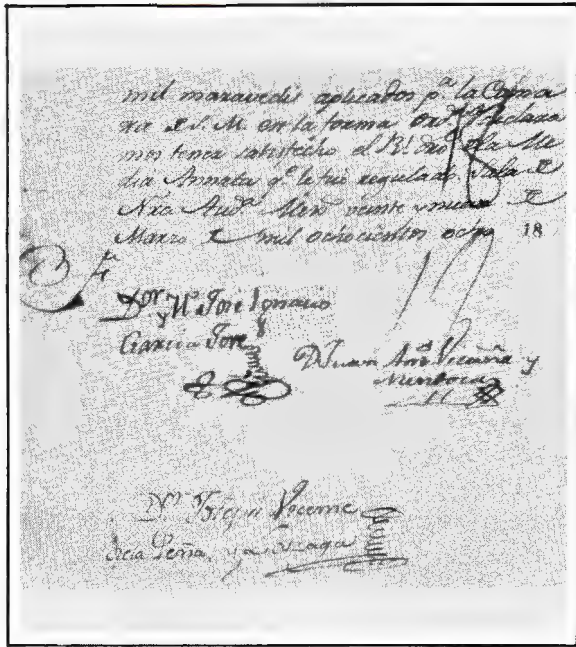 mil maravedis aplicados p.ª la Cama
ra de S. M. en la forma ord.ª y declara
mos tener satisfecho el R.l dro de la Me
dia Annata q.e le fué regulado. Sala de
Nra Aud.ª veinte y nueve de
Marzo de mil ochocientos ocho 18
D.or y M.º José Ignacio
García Jove
D. Juan Ant.º Vicuña y
Mendoza
D.n Vicente
Peña, y